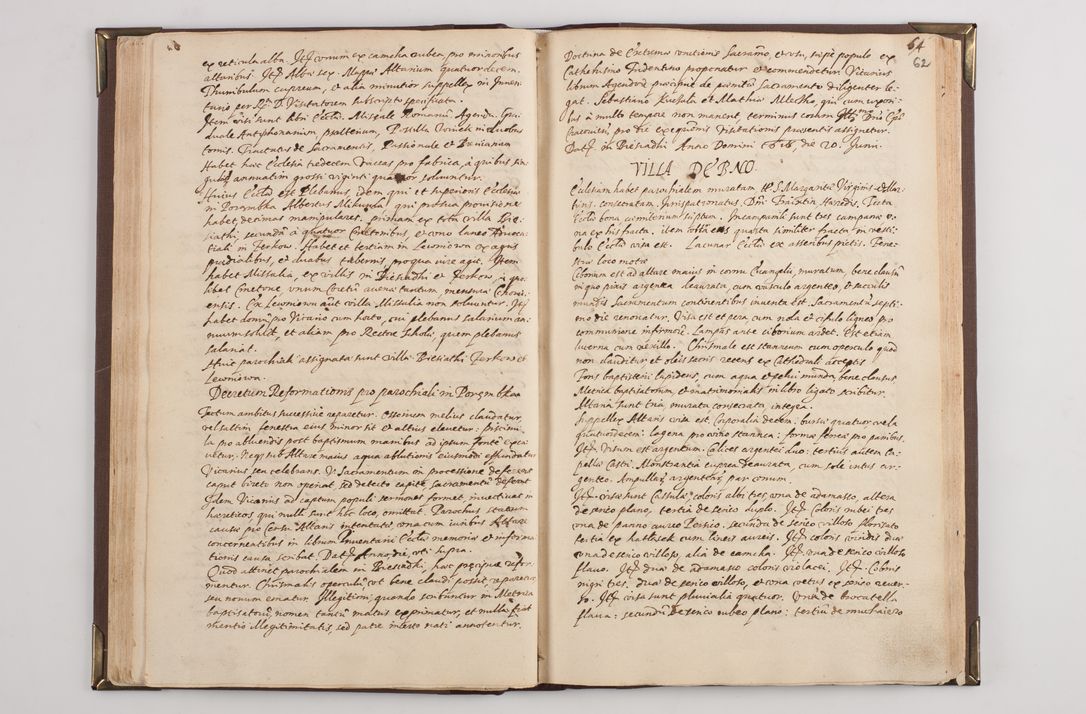 ex reticula alba. Itē unum ex camcha rubea, pro minoribus
altaribus. Itē Albæ sex. Mappæ Altarium quatuordecem.
Thuribulum cupreum, et alia minutior suppellex in Inuen-
tario per D. Visitatorem subscripto specificata.
Item visi sunt libri Ecclæ. Missale Romanū, Agenda, Gra-
duale, Antiphonarium, psalterium, Postilla in duobus
tomis. Tractatus de Sacramentis, Passionale et
Habet hæc Ecclesia tredecem vaccas pro fabrica, à quibus sin-
gulis annuatim grossi viginti quatuor soluuntur.
Huius Ecclæ est Plebanus, idem qui et superioris Ecclesiæ
in Porembka Albertus qui pro sua prouisione
habet decimas manipulares, primam ex tota villa
secundā à quatuor Cmetonibus, et uno laneo Aduoca-
tiali in Jerkow. Habet et tertiam in Lewniowa ex agris
prædialibus, et duabus tabernis, pro qua viæ agit. Item
habet Missalia, ex villis in Biesiadki et Jerkow, à quo-
libet Cmetone, unum Coretū auenæ tantum, mensuræ
ensis. Ex Lewniowa autē villa Missalia non soluuntur. Itē
habet domū pro Vicario cum horto, cui plebanus salarium an-
nuum soluit, et aliam pro Rectore Scholæ, quem plebanus
salariat.
Huic parochiæ assignatæ sunt villæ Biesiadki Jerkow et
Lewniowa.
Decretum Reformationis pro parochiali in Porembka
Tectum ambitus successiue reparetur. Ossorium melius claudatur
vel saltim fenestra eius minor sit et altius eleuetur: piscinu-
la pro abluendis post baptismum manibus ad ipsum fontē exca-
uetur, neque sub Altare maius aqua ablutionis eiusmodi effundatur
Vicarius seu celebrans. V. Sacramentum in processione deferens
caput bireto non operiat, sed detecto capite, sacramentū deferat
Idem Vicarius ad captum populi sermones formet, inuectiuas in
hæreticos qui nulli sunt hoc loco, omittat. Parochus statum
causæ pro Censu Altaris intentatæ una cum iuribus Altare
concernentibus in librum Inuentarii Ecclæ memoriæ et informa-
tionis causa scribat. Datē Anno, die, uti supra.
Quod attinet parochialem in Biesiadki, hæc præcipue refor-
mentur. Chrismalis operculū ut bene claudi possit, reparetur
seu nouum ematur. Illegitimi quando scribuntur in Metrica
baptisatorū, nomen tantū matris exprimatur, et nulla fiat
mentio illegitimitatis, sed patre incerto nati annotentur.
64
62
Doctrina de Extremæ unctionis Sacramēto, et usu, sæpè populo ex
Cathechismo Tridentino proponatur et commendetur. Vicarius
librum Agendorū præcipuè de pœnitētiæ Sacramento diligenter le-
gat. Sebastiano Kusipla et Mathiæ qui cum uxori-
bus à multo tempore non manent, terminus coram Illmo Dno Epō
Cracouien, pro die exequēmis Visitationis præsentis assignetur.
Datē in Biesiadki Anno Domini 1618, die 20. Junii.
VILLA DEBNO.
Ecclesiam habet parochialem muratam tt. S. Margaritæ Virginis et Mar-
tyris, consecratam, Jurispatronatus Dni Haredis. Tecta
Ecclæ bona, cæmiterium septum. In campanili sunt tres campanæ u-
na ex his fracta, item quarta similiter fracta in vesti-
bulo Ecclæ visa est. Lacunar Ecclæ ex asseribus pictis. Fene-
stræ loco motæ
Ciborium est ad altare maius in cornu Euangelii, muratum, bene clausū
in quo pixis argentea deaurata, cum cuius cō argenteo, et pannulis
mundis Sacramentum continentibus inuenta est. Sacramentū septi-
mo die renouatur. Visa est et pera cum nola et cipulo ligneo pro
communione infirmorū. Lampas ante ciborium ardet. Est etiam
lucerna cum vexillo. Chrismale est stanneum cum operculo quod
non clauditur et oleis sacris recens ex Cathedrali acceptis
Fons baptismi lapideus, cum aqua et salsui munda, bene clausus
Metrica baptisatorum, et matrimonialis in libro ligato scribitur.
Altaria sunt tria, murata consecrata integra.
Suppellex Altaris visa est, Corporalia decem, bursæ quatuor vela
quatuordecem: lagena pro vino stannea: forma ferrea pro panibus.
Itē visum est argentum. Calices argentei duo: tertius autem Ca-
pellæ Castri. Monstrantia cuprea deaurata, cum sole intus ar-
genteo. Ampullarū argentearū par unum.
Itē visæ sunt Casulæ coloris albi tres, una de adamasto, altera
de serico plano, tertia de serico duplo. Itē Coloris rubei tres
una de panno aureo Persico, secunda de serico villoso florisato
tertia ex hatlasek cum lineis aureis. Itē coloris viridis duæ
una de serico villoso, alia de camcha. Itē una de serico villoso
flauo. Itē duæ de adamasco coloris violacei. Itē Coloris
nigri tres, duæ de serico villoso, et una vetus ex serico rever-
so. Itē visa sunt pluuialia quatuor. Unū de brocatella
flaua: secundū de serico rubeo plano: tertiū de muchaiero